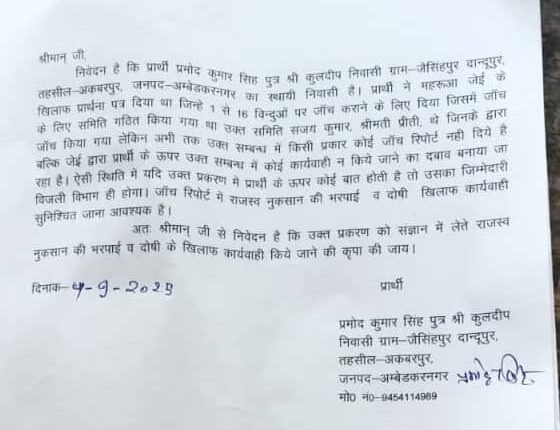 श्रीमान् जी,
निवेदन है कि प्रार्थी प्रमोद कुमार सिंह पुत्र श्री कुलदीप निवासी ग्राम–जैसिंहपुर दान्दूपुर,
तहसील–अकबरपुर, जनपद–अम्बेडकरनगर का स्थायी निवासी है। प्रार्थी ने महरूआ जेई के
खिलाफ प्रार्थना पत्र दिया था जिन्हे 1 से 16 विन्दुओं पर जॉच कराने के लिए दिया जिसमें जॉच
के लिए समिति गठित किया गया था उक्त समिति संजय कुमार, श्रीमती प्रीती, थे जिनके द्वारा
जॉच किया गया लेकिन अभी तक उक्त सम्बन्ध में किसी प्रकार कोई जॉच रिपोर्ट नही दिये है
बल्कि जेई द्वारा प्रार्थी के ऊपर उक्त सम्बन्ध में कोई कार्यवाही न किये जाने का दबाव बनाया जा
रहा है। ऐसी स्थिति में यदि उक्त प्रकरण में प्रार्थी के ऊपर कोई बात होती है तो उसका जिम्मेदारी
विजली विभाग ही होगा। जॉच रिपोर्ट मे राजस्व नुकसान की भरपाई व दोषी खिलाफ कार्यवाही
सुनिश्चित जाना आवश्यक है।
अतः श्रीमान् जी से निवेदन है कि उक्त प्रकरण को संज्ञान में लेते राजस्व
नुकसान की भरपाई व दोषी के खिलाफ कार्यवाही किये जाने की कृपा की जाय।
दिनाक–4-9-2025 प्रार्थी
प्रमोद कुमार सिंह पुत्र श्री कुलदीप
निवासी ग्राम–जैसिंहपुर दान्दूपुर,
तहसील–अकबरपुर,
जनपद–अम्बेडकरनगर
मो0 नं0–9454114969